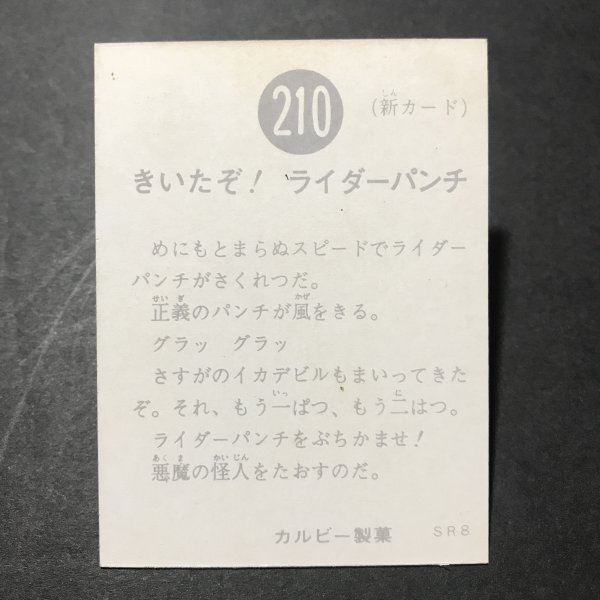 210
(新カード)
しん
きいたぞ! ライダーパンチ
めにもとまらぬスピードでライダー
パンチがさくれつだ。
せいぎ かぜ
正義のパンチが風をきる。
グラッ グラッ
さすがのイカデビルもまいってきた
いっ に
ぞ。それ、もう一ぱつ、もう二はつ。
ライダーパンチをぶちかませ!
あくま かいじん
悪魔の怪人をたおすのだ。
カルビー製菓
SR8